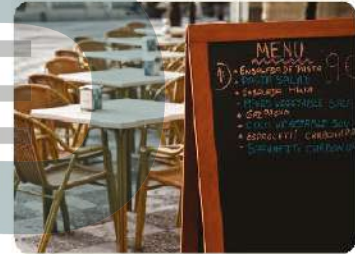 MENU 9€
1) • ENSALADA DE PASTA
• PASTA SALAT
• ENSALADA MIXTA
• MIXED VEGETABLE SALAT
• GAZPACHO
• COLD VEGETABLE SOUP
• ESPAGUETI CARBONARA
• SPAGHETTI CARBONARA